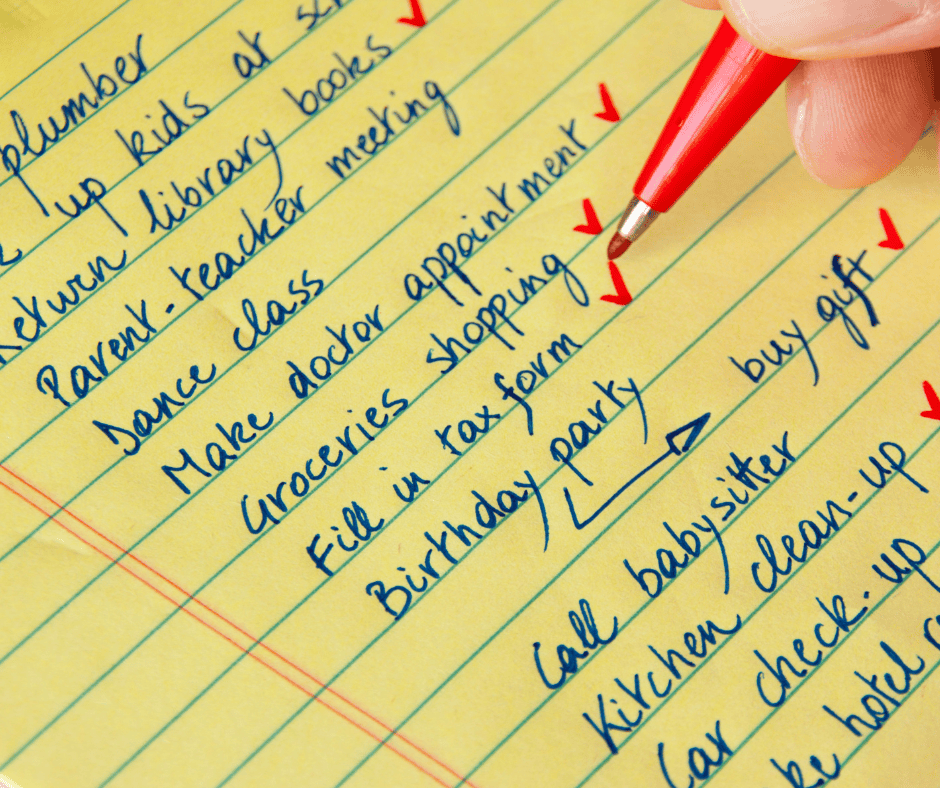 plumber
up kids at
Return library books
Parent-teacher meeting
Dance class
Make doctor appointment
Groceries shopping
Fill in tax form
Birthday party
buy gift
Call babysitter
Kitchen clean-up
Car check-up
hotel